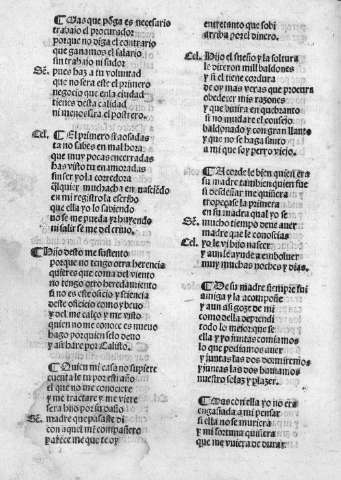 ¶ Mas que pōga es necesario
trabajo el procurador
porque no diga el contrario
que ganamos el salario
sin trabajo ni sudor
Sē. pues haz a tu voluntad
que no sera este el primero
negocio que enla ciudad
tienes desta calidad
ni menos sera el postrero.
Cel. ¶ El primero
ta no sabes en mal hora
que muy pocas encerradas
has visto tu en moradas
sin ser yo la corredora
qlquier muchacha en nasciēdo
en mi registro la escribo
que ella yo lo sabiendo
no se me pueda yr huyendo
ni salir se me del cribo.
¶ Hijo desto me sustento
porque no tengo otra herencia
quieres que coma del viento
no tengo otro heredamiento
si no es este oficio y sciencia
deste oficio como y bevo
y del me calço y me visto
quien no me conoce es nuevo
hago por quien selo devo
y assi hare por Calisto.
¶ Quien mi casa no supiere
cuenta le tu por estraño
el que no me conociere
y me tractare y me viere
sera hijo por su daño
Sē. madre que passaste di
con aquel mi compañero
parece me que te oy
entretanto que sobi
arriba por el dinero.
Cel. ¶ Hijo el sueño y la soltura
le dixeron mill baldones
y si el tiene cordura
de oy mas veras que procura
obedecer mis razones
y que venira en quebranto
si no mudare el consejo
baldonado y con gran llanto
y que no se haga sancto
a mi que soy perro viejo.
¶ Acorde le bien quien era
su madre tambien quien fue
si desdeñar me quisiera
tropeçase la primera
en su madra qual yo se
Sē. mucho tiempo deve aver
madre que le conoscias
Cel. yo le vi bivo nascer
y aun le ayude a emboluer
muy muchas noches y dias.
¶ De su madre siempre fui
amiga y la acompañe
y aun asi goze de mi
como della deprendi
todo lo mejor que se
ella y yo juntas comiamos
lo que podiamos aver
y juntas las dos dormiemos
y juntas las dos haviamos
nuestro solaz y plazer.
¶ Mas con ella yo no era
engañada a mi pensar
si ella no se muriera
y mi fortuna quisiera
que me viuiera de durar.